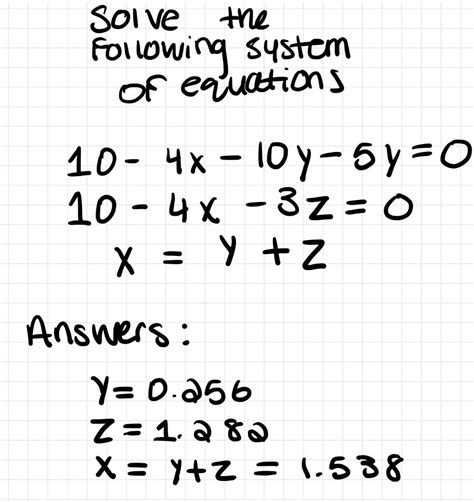 Solve the
Following system
of equations
10 - 4x - 10y - 5y = 0
10 - 4x - 3z = 0
x = y + z
Answers:
y = 0.256
z = 1.282
x = y+z = 1.538